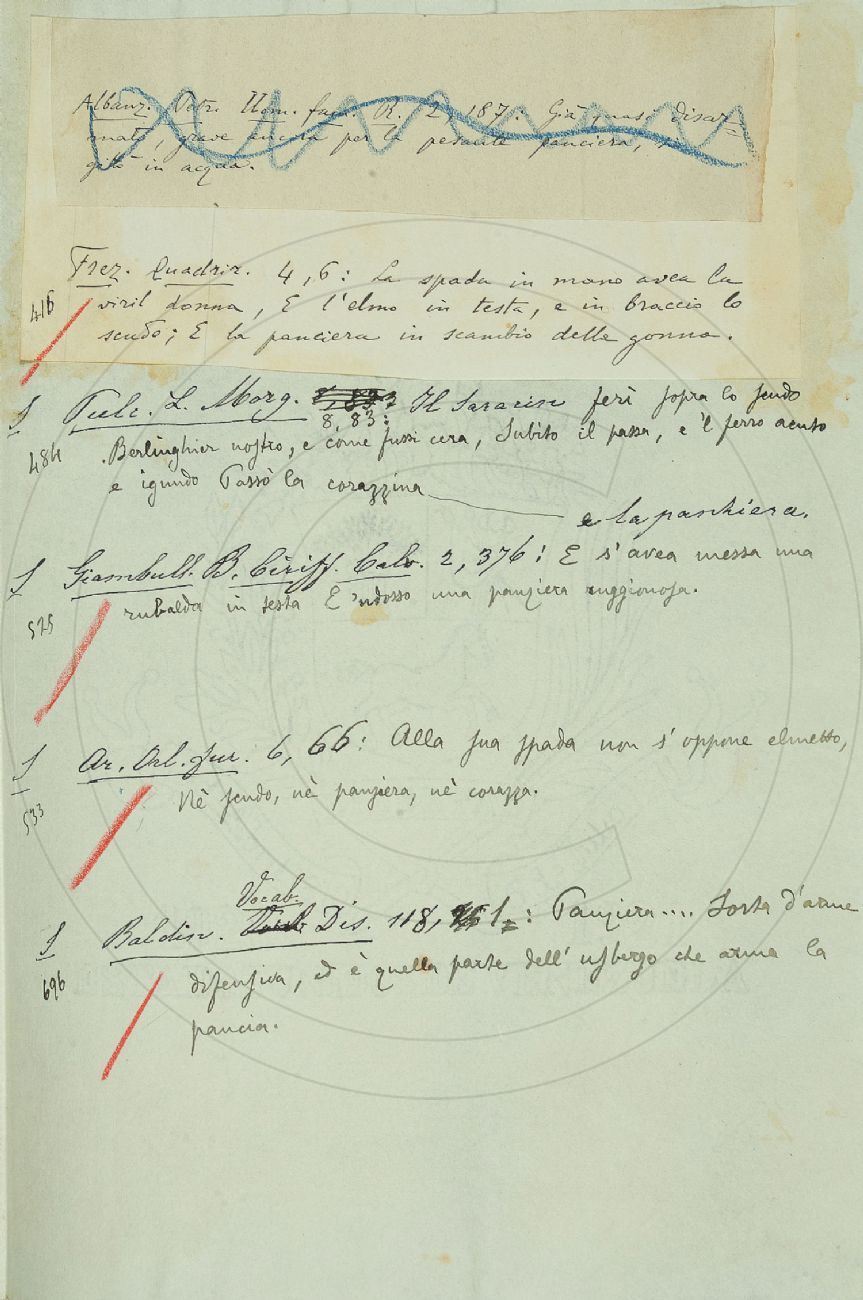 Albanz. Petr. Uom. fam. R. 2, 187: Già quasi disar-
mato, grave ancora per la pesante panciera, si
gittò in acqua.
Frez. Quadrir. 4, 6: La spada in mano avea la
416 viril donna, E l'elmo in testa, e in braccio lo
scudo; E la panciera in scambio della gonna.
Pulc. L. Morg. 8, 83: Il Saracin ferì sopra lo scudo
484 Berlinghier nostro, e come fussi cera, Subito il passa, e 'l ferro acuto
e ignudo Passò la corazzina
e la panziera.
Giambull. B. Ciriff. Calv. 2, 376: E s'avea messa una
525 rubalda in testa E 'ndosso una panziera rugginosa.
Ar. Orl. fur. 6, 66: Alla sua spada non s'oppone elmetto,
533 Nè scudo, nè panziera, nè corazza.
Vocab.
Baldin. Dis. 118, 1: Panziera.... Sorta d'arme
696 difensiva, ed è quella parte dell'usbergo che arma la
pancia.